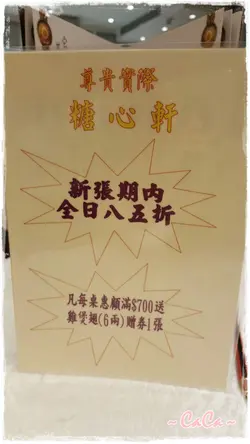 尊貴實際
糖心軒
新張期內
全日八五折
凡每桌惠顧滿$700送
雞煲翅(6兩)贈券1張
~ CaCa ~